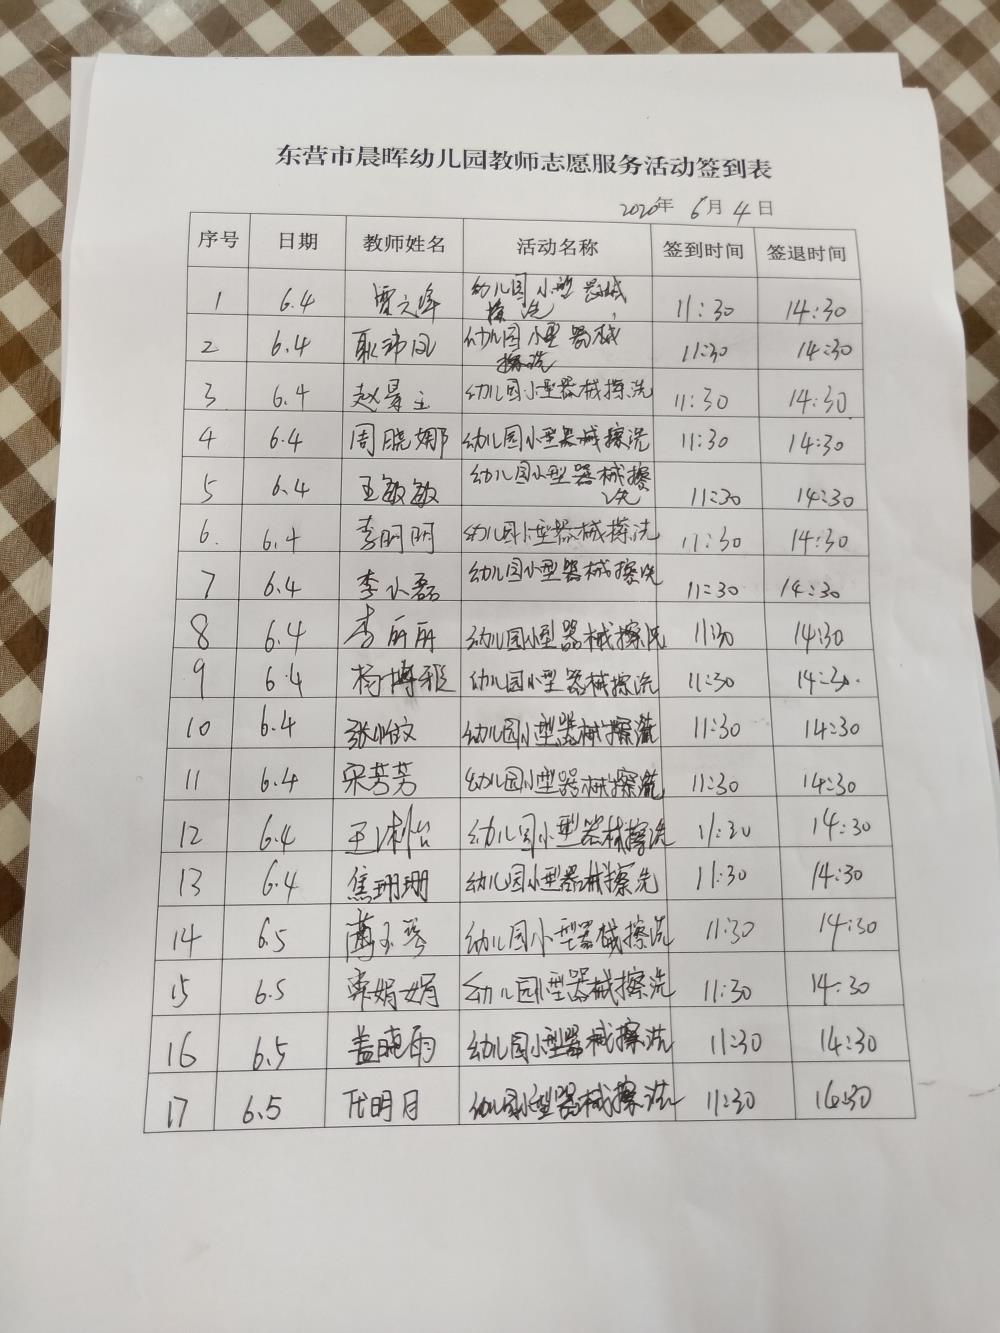 东营市晨晖幼儿园教师志愿服务活动签到表
2020年 6月 4日
序号 日期 教师姓名 活动名称 签到时间 签退时间
1 6.4 幼儿园小型器械擦洗 11:30 14:30
2 6.4 幼儿园小型器械擦洗 11:30 14:30
3 6.4 赵 幼儿园小型器械擦洗 11:30 14:30
4 6.4 周晓娜 幼儿园小型器械擦洗 11:30 14:30
5 6.4 王敏敏 幼儿园小型器械擦洗 11:30 14:30
6. 6.4 李明明 幼儿园小型器械擦洗 11:30 14:30
7 6.4 李小磊 幼儿园小型器械擦洗 11:30 14:30
8 6.4 李丽丽 幼儿园小型器械擦洗 11:30 14:30
9 6.4 杨博雅 幼儿园小型器械擦洗 11:30 14:30.
10 6.4 张怡文 幼儿园小型器械擦洗 11:30 14:30
11 6.4 宋芳芳 幼儿园小型器械擦洗 11:30 14:30
12 6.4 王 怡 幼儿园小型器械擦洗 11:30 14:30
13 6.4 焦珊珊 幼儿园小型器械擦洗 11:30 14:30
14 6.5 幼儿园小型器械擦洗 11:30 14:30
15 6.5 娟娟 幼儿园小型器械擦洗 11:30 14:30
16 6.5 盖晓雨 幼儿园小型器械擦洗 11:30 14:30
17 6.5 代明月 幼儿园小型器械擦洗 11:30 14:30